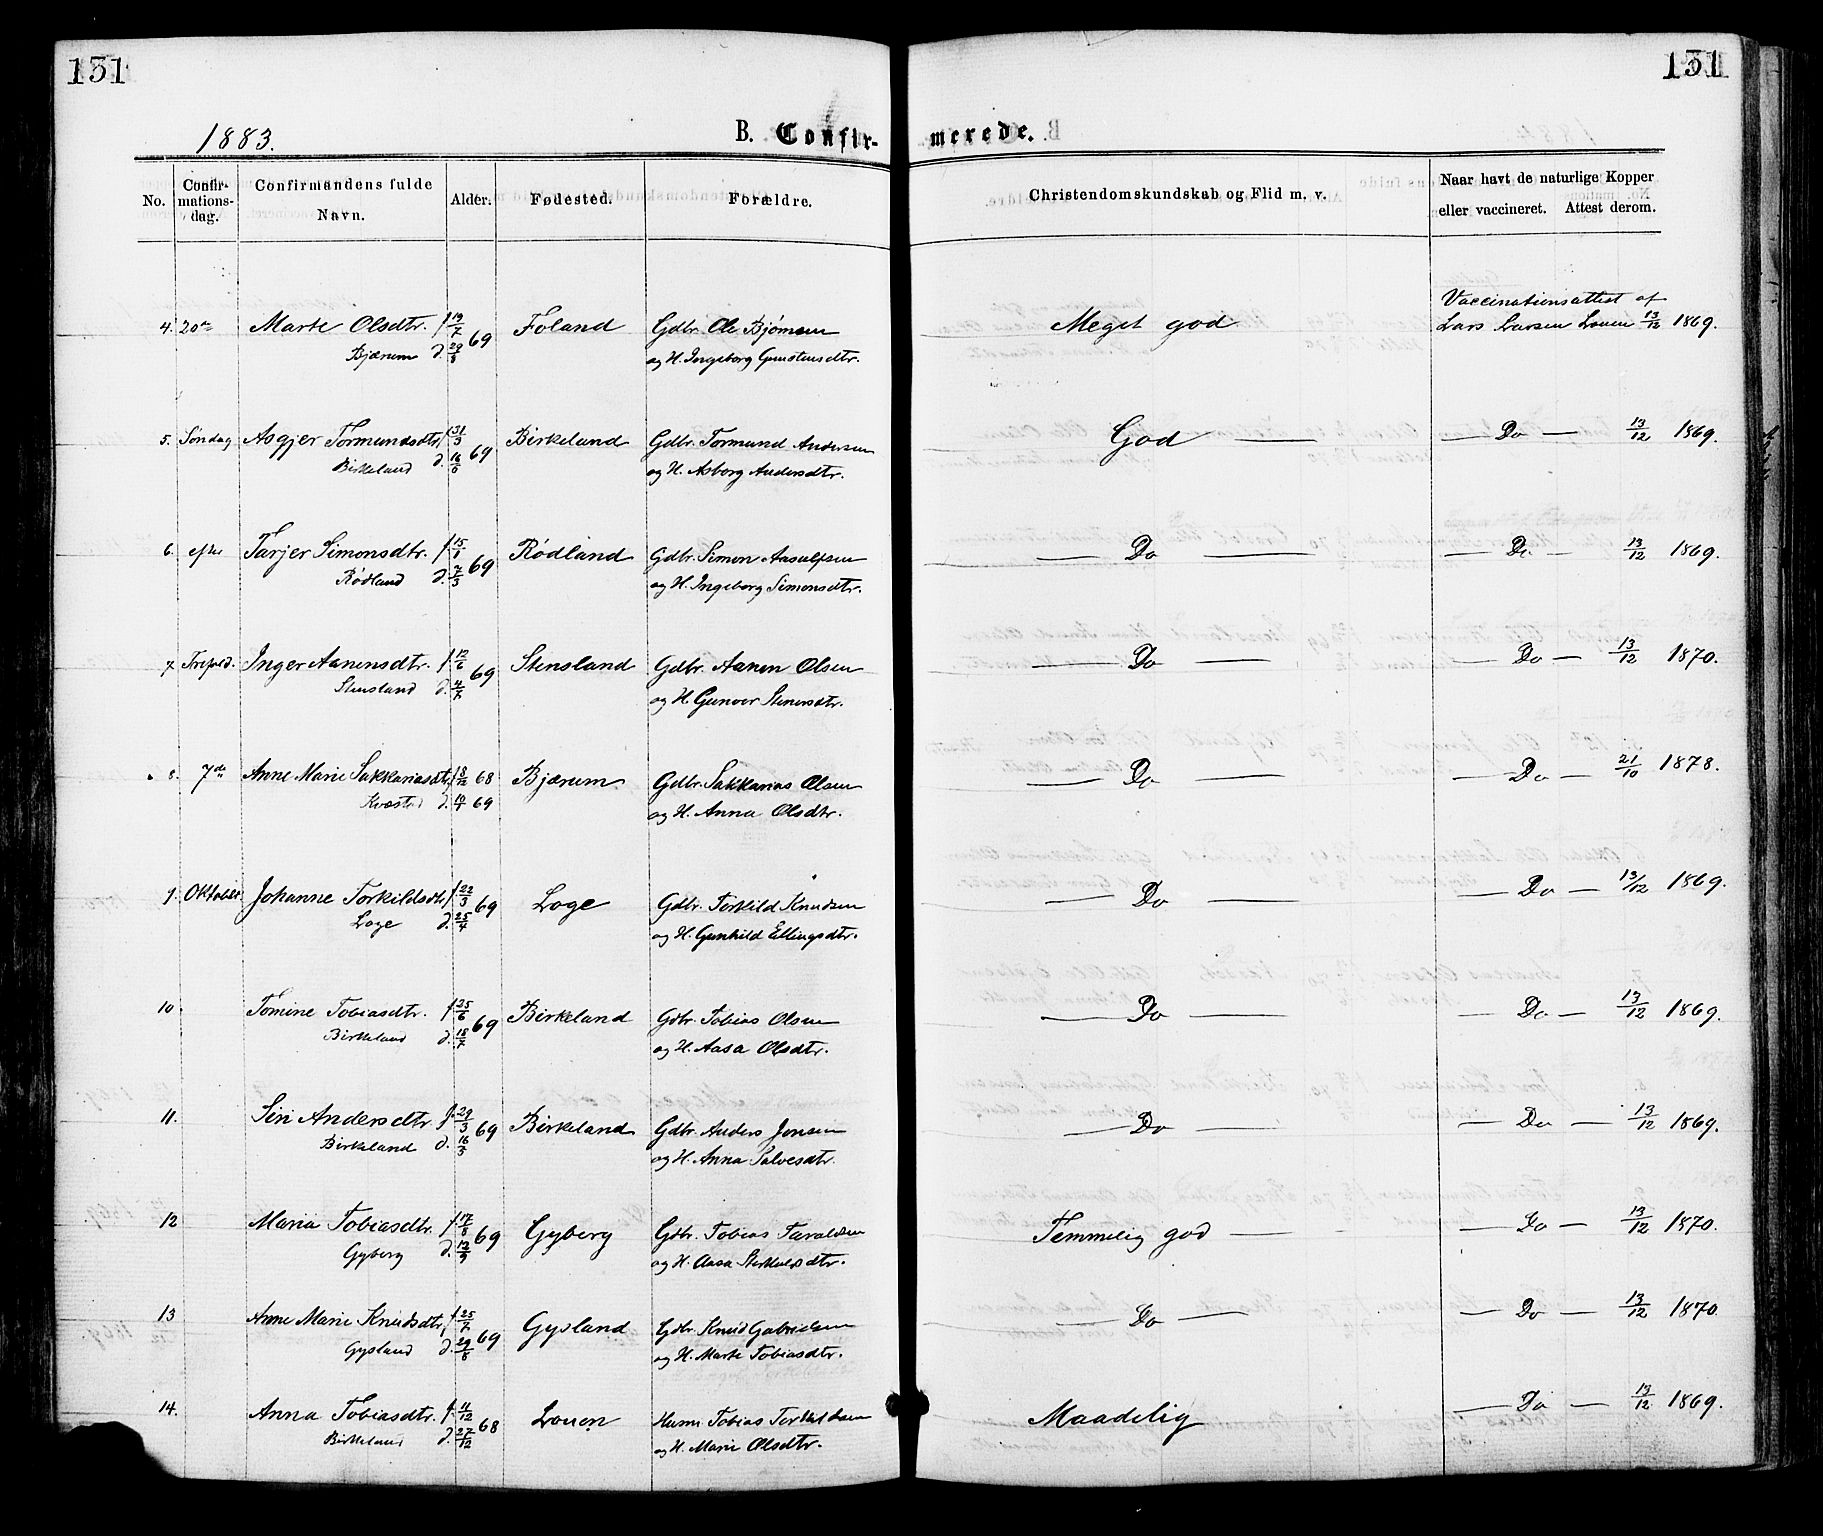 131
131
1883.
B. Confir-
merede.
No.
Confir-
mations-
dag.
Confirmandens fulde
Navn.
Alder.
Fødested.
Forældre.
Christendomskundskab og Flid m. v.
Naar havt de naturlige Kopper
eller vaccineret. Attest derom.
4. 20de Marte Olsdtr. f 19/7 69 Føland Gdbr. Ole Bjørnsen Meget god Vaccinationsattest af
Bjærum d. 29/8 og H. Ingeborg Gunstensdtr. Lars Larsen Louen 13/12 1869.
5. Søndag Asgjer Tormundsdtr. f 31/3 69 Birkeland Gdbr. Tormund Andersen God — — Do — 13/12 1869.
Birkeland d. og H. Asborg Andersdtr.
6. efter Tarjer Simonsdtr. f 15/1 69 Rødland Gdbr. Simon Aasulfsen — Do — — Do — 13/12 1869.
Rødland d. 7/3 og H. Ingeborg Simonsdtr.
7 Trefold. Inger Aanensdtr. f 12/6 69 Stensland Gdbr. Aanen Olsen — Do — — Do — 13/12 1870.
Stensland d. 4/7 og H. Gunvor Stenersdtr.
8. 7de Anne Marie Sakkariasdtr. f 18/12 68 Bjærum Gdbr. Sakkarias Olsen — Do — — Do — 21/10 1878.
Kvæstad d. 69 og H. Anna Olsdtr.
9. Oktober Johanne Torkildsdtr. f 22/3 69 Loge Gdbr. Torkild Knudsen — Do — — Do — 13/12 1869.
Loge d. 25/4 og H. Gunhild Ellingsdtr.
10 Tomine Tobiasdtr. f 25/6 69 Birkeland Gdbr. Tobias Olsen — Do — — Do — 13/12 1869.
Birkeland d. 18/7 og H. Aasa Olsdtr.
11. Siri Andersdtr. f. 29/3 69 Birkeland Gdbr. Anders Jonsen — Do — — Do — 13/12 1869.
Birkeland d. 16/5 og H. Anna Salvesdtr.
12 Maria Tobiasdtr. f. 17/8 69 Gyberg Gdbr. Tobias Taraldsen Temmelig god — — Do — 13/12 1870.
Gyberg d. 12/9 og H. Aasa
13 Anne Marie Knudsdtr. f 25/7 69 Gysland Gdbr. Knud Gabrielsen — Do — — Do — 13/12 1870.
Gysland d. 29/8 og H. Marte Tobiasdtr.
14. Anna Tobiasdtr. f. 11/12 68 Louen Husm. Tobias Torkildsen Maadelig — Do — 13/12 1869.
Birkeland d. 27/12 og H. Marie Olsdtr.